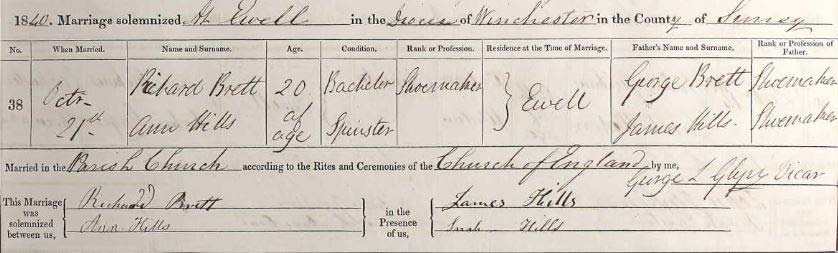 1840. Marriage solemnized At Ewell in the Diocese of Winchester in the County of Surrey
No. When Married. Name and Surname. Age. Condition. Rank or Profession. Residence at the Time of Marriage. Father's Name and Surname. Rank or Profession of Father.
38 Octr 21st Richard Brett 20 Bachelor Shoemaker Ewell George Brett Shoemaker
Ann Hills of age Spinster James Hills Shoemaker
Married in the Parish Church according to the Rites and Ceremonies of the Church of England by me,
George L Glyn Vicar
This Marriage was solemnized between us, Richard Brett in the Presence of us, James Hills
Ann Hills Hills